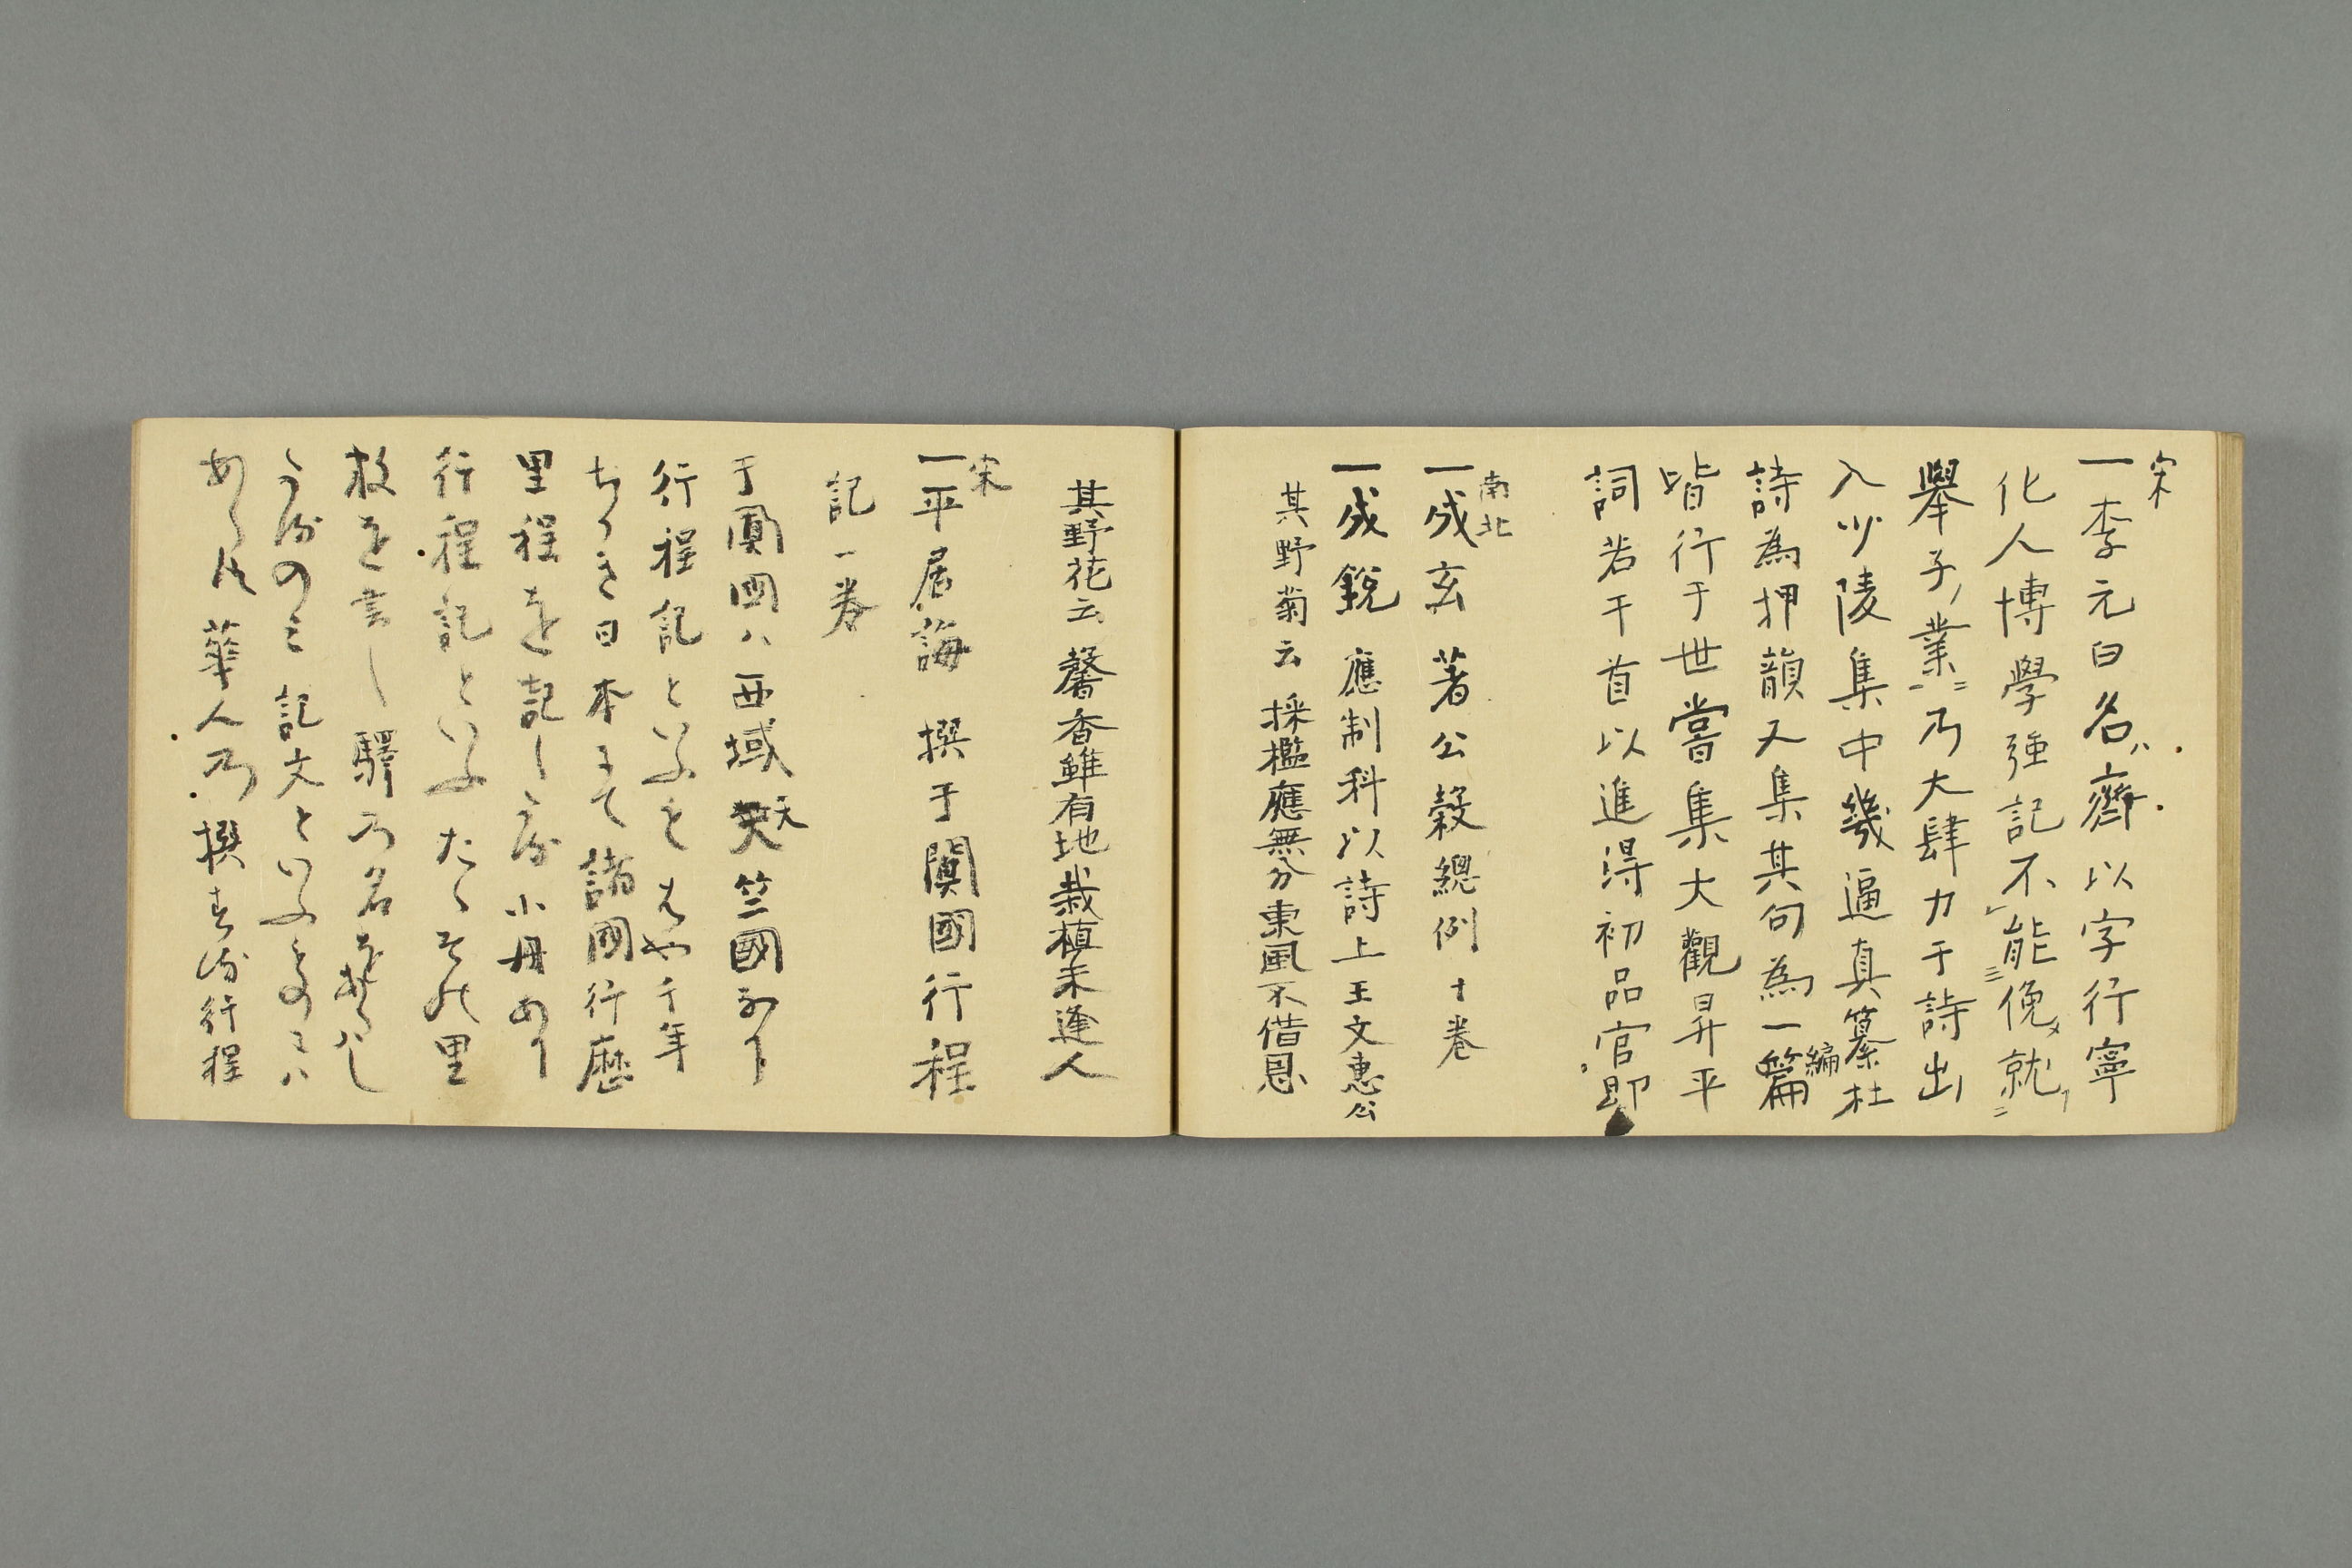 宋
一李元白名ハ齊以字行寧
化人博學強記不能俛就
舉子業乃大肆力于詩出
入少陵集中幾逼真纂杜
詩為押韻又集其句為一篇編
皆行于世嘗集大觀昇平
詞若干首以進得初品官即
南北
一成玄 著公穀總例十巻
一成鋭 應制科以詩上王文惠公
其野菊云 採檻應無分東風不借恩
其野花云 馨香雖有地栽植未逢人
宋
一平居誨 撰于闐國行程
記一巻
于闐國ハ西域天竺國なり
行程記といふもはや千年
ちかき日本にて諸國行歴
里程を記し
行程記といふたゝその里
数を書し驛の名を
のミ記文といふものニハ
あらす華人乃撰する行程